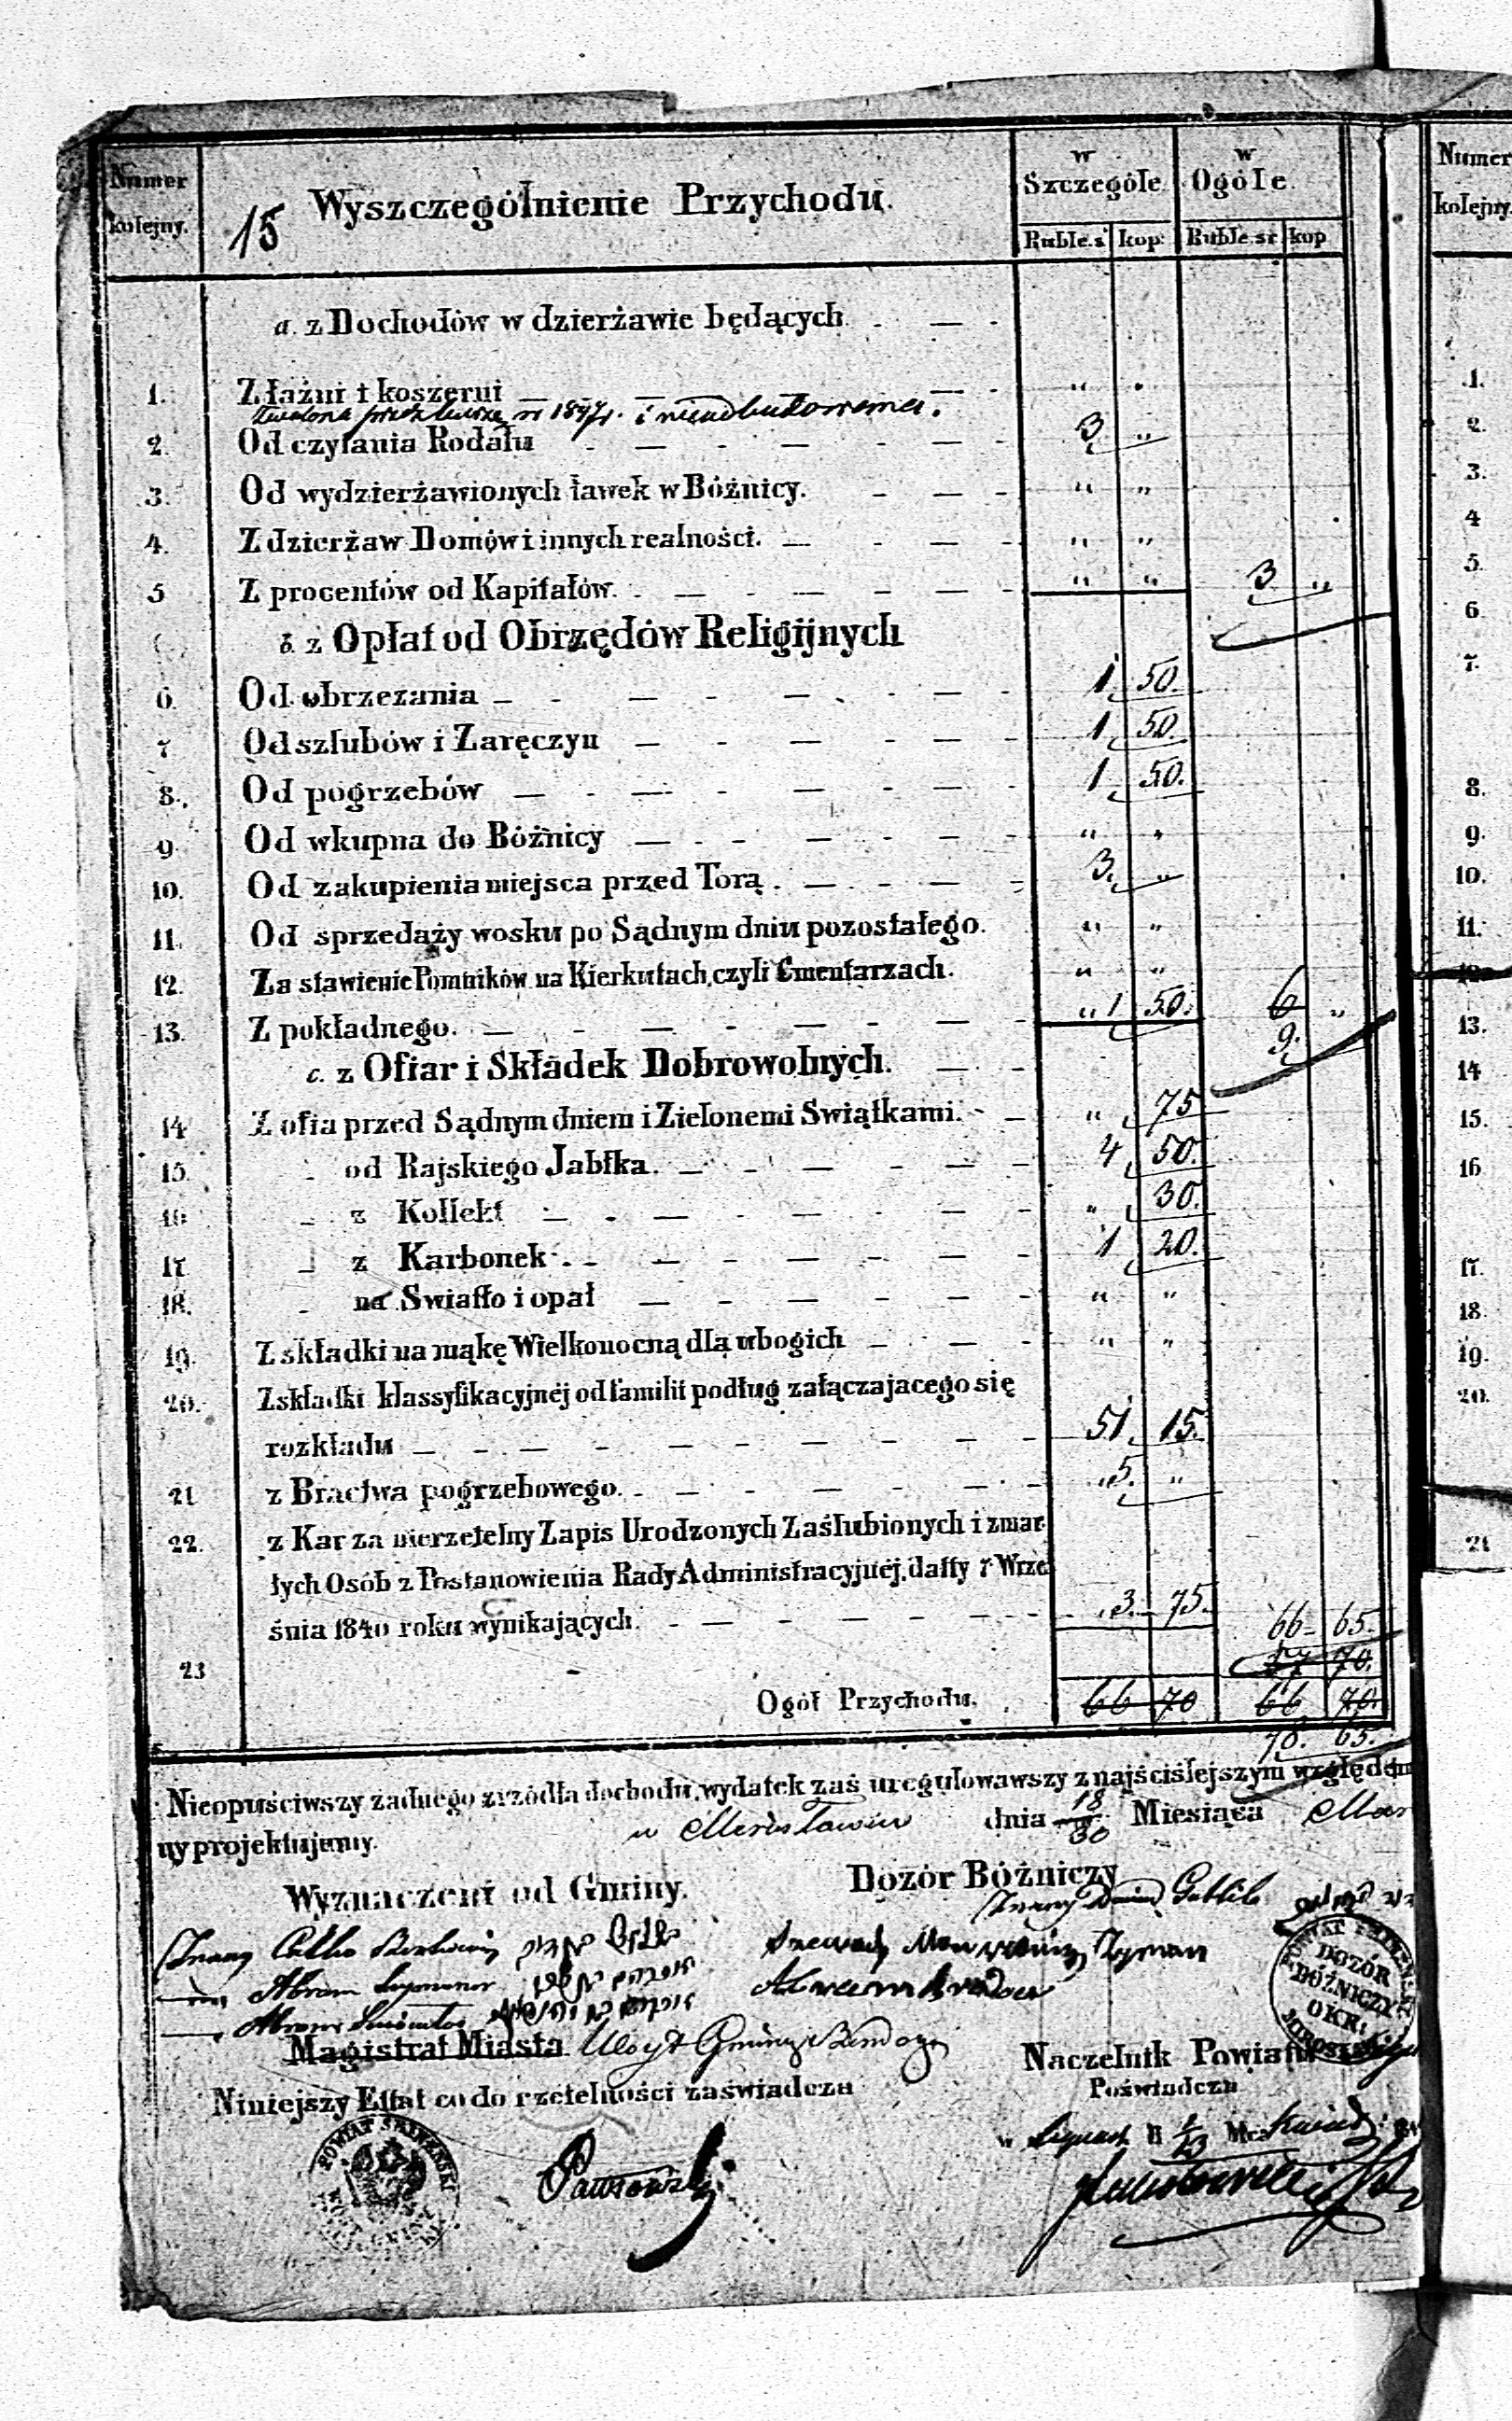 Numer kolejny. 15 Wyszczególnienie Przychodu. w Szczególe w Ogóle.
Ruble.s kop: Ruble.sr kop
a. z Dochodów w dzierżawie będących
1. Z łaźni i koszerni — „ „
w 1847r. i nieodbudowana.
2. Od czytania Rodału 3 „
3. Od wydzierżawionych ławek w Bóżnicy. „ „
4. Z dzierżaw Domów i innych realności. „ „
5 Z procentów od Kapitałów. „ „ 3 „
b. z Opłat od Obrzędów Religijnych
6. Od obrzezania 1 50.
7 Od szlubów i Zaręczyn 1 50.
8. Od pogrzebów 1 50.
9 Od wkupna do Bóżnicy „ „
10. Od zakupienia miejsca przed Torą. 3. „
11. Od sprzedaży wosku po Sądnym dniu pozostałego. „ „
12. Za stawienie Pomników na Kierkutach, czyli Cmentarzach. „ „
13. Z pokładnego. „ 1 50. 6 „
9.
c. z Ofiar i Składek Dobrowolnych.
14 Z ofia przed Sądnym dniem i Zielonemi Swiątkami. „ 75
15. od Rajskiego Jabłka. 4 50.
16 z Kollekt „ 30.
17 z Karbonek. 1 20.
18. na Swiatło i opał „ „
19. Z składki na mąkę Wielkonocną dla ubogich „ „
20. Z składki klassyfikacyjnéj od familii podług załączajacego się
rozkładu 51. 15.
21 z Bractwa pogrzebowego. „ 5. „
22. z Kar za nierzetelny Zapis Urodzonych Zaślubionych i zmar-
łych Osób z Postanowienia Rady Administracyjnéj. datty 7 Wrze
śnia 1840 roku wynikających. „ 3. 75. 66 65.
23 57 70.
Ogół Przychodu. 66 70 66 70.
78. 65.
Nieopuściwszy żadnego zrzódła dochodu, wydatek zaś uregulowawszy z najściślejszym względem
ny projektujemy. w dnia 18/30 Miesiąca Mar
Wyznaczeni od Gminy. Dozór Bóżniczy
Abram
Magistrat Miasta Wóyt Gminy
Naczelnik Powiatu
Niniejszy Ettat co do rzetelności zaświadcza
Poświadcza
DOZÓR BÓŻNICZY OKR: